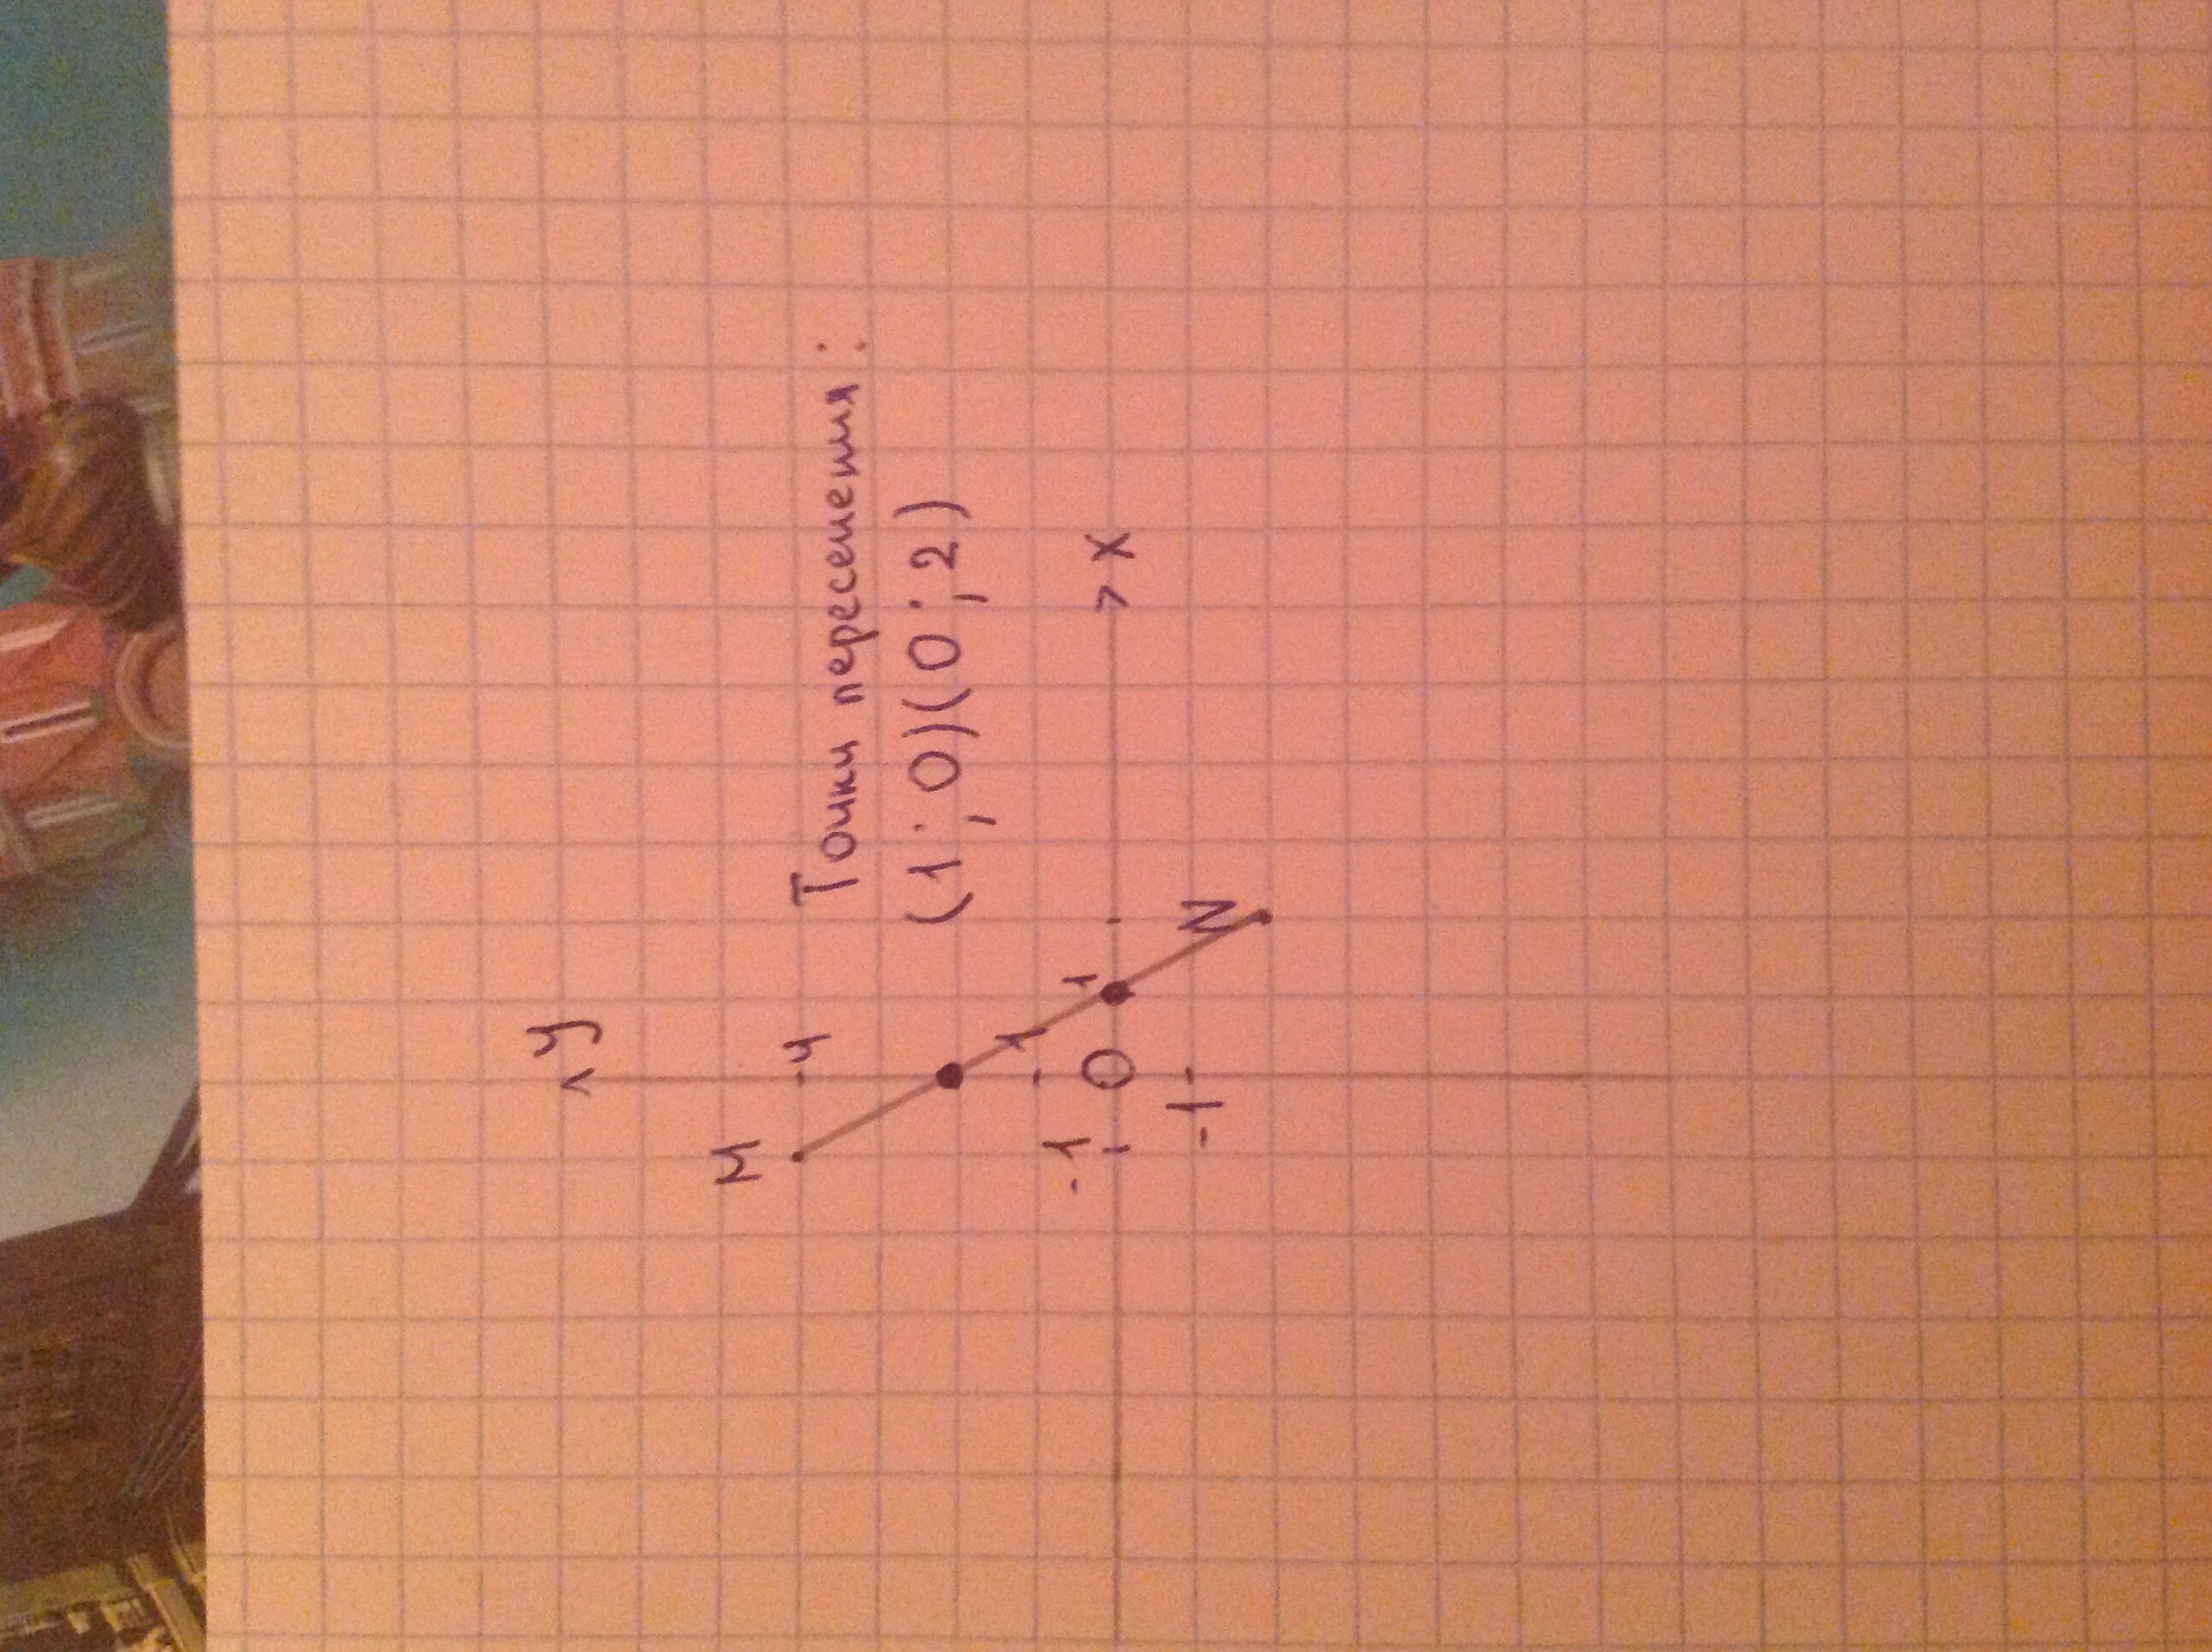 y
M
4
Точки пересечения:
(1;0)(0;2)
1
-1
1
0
x
-1
N